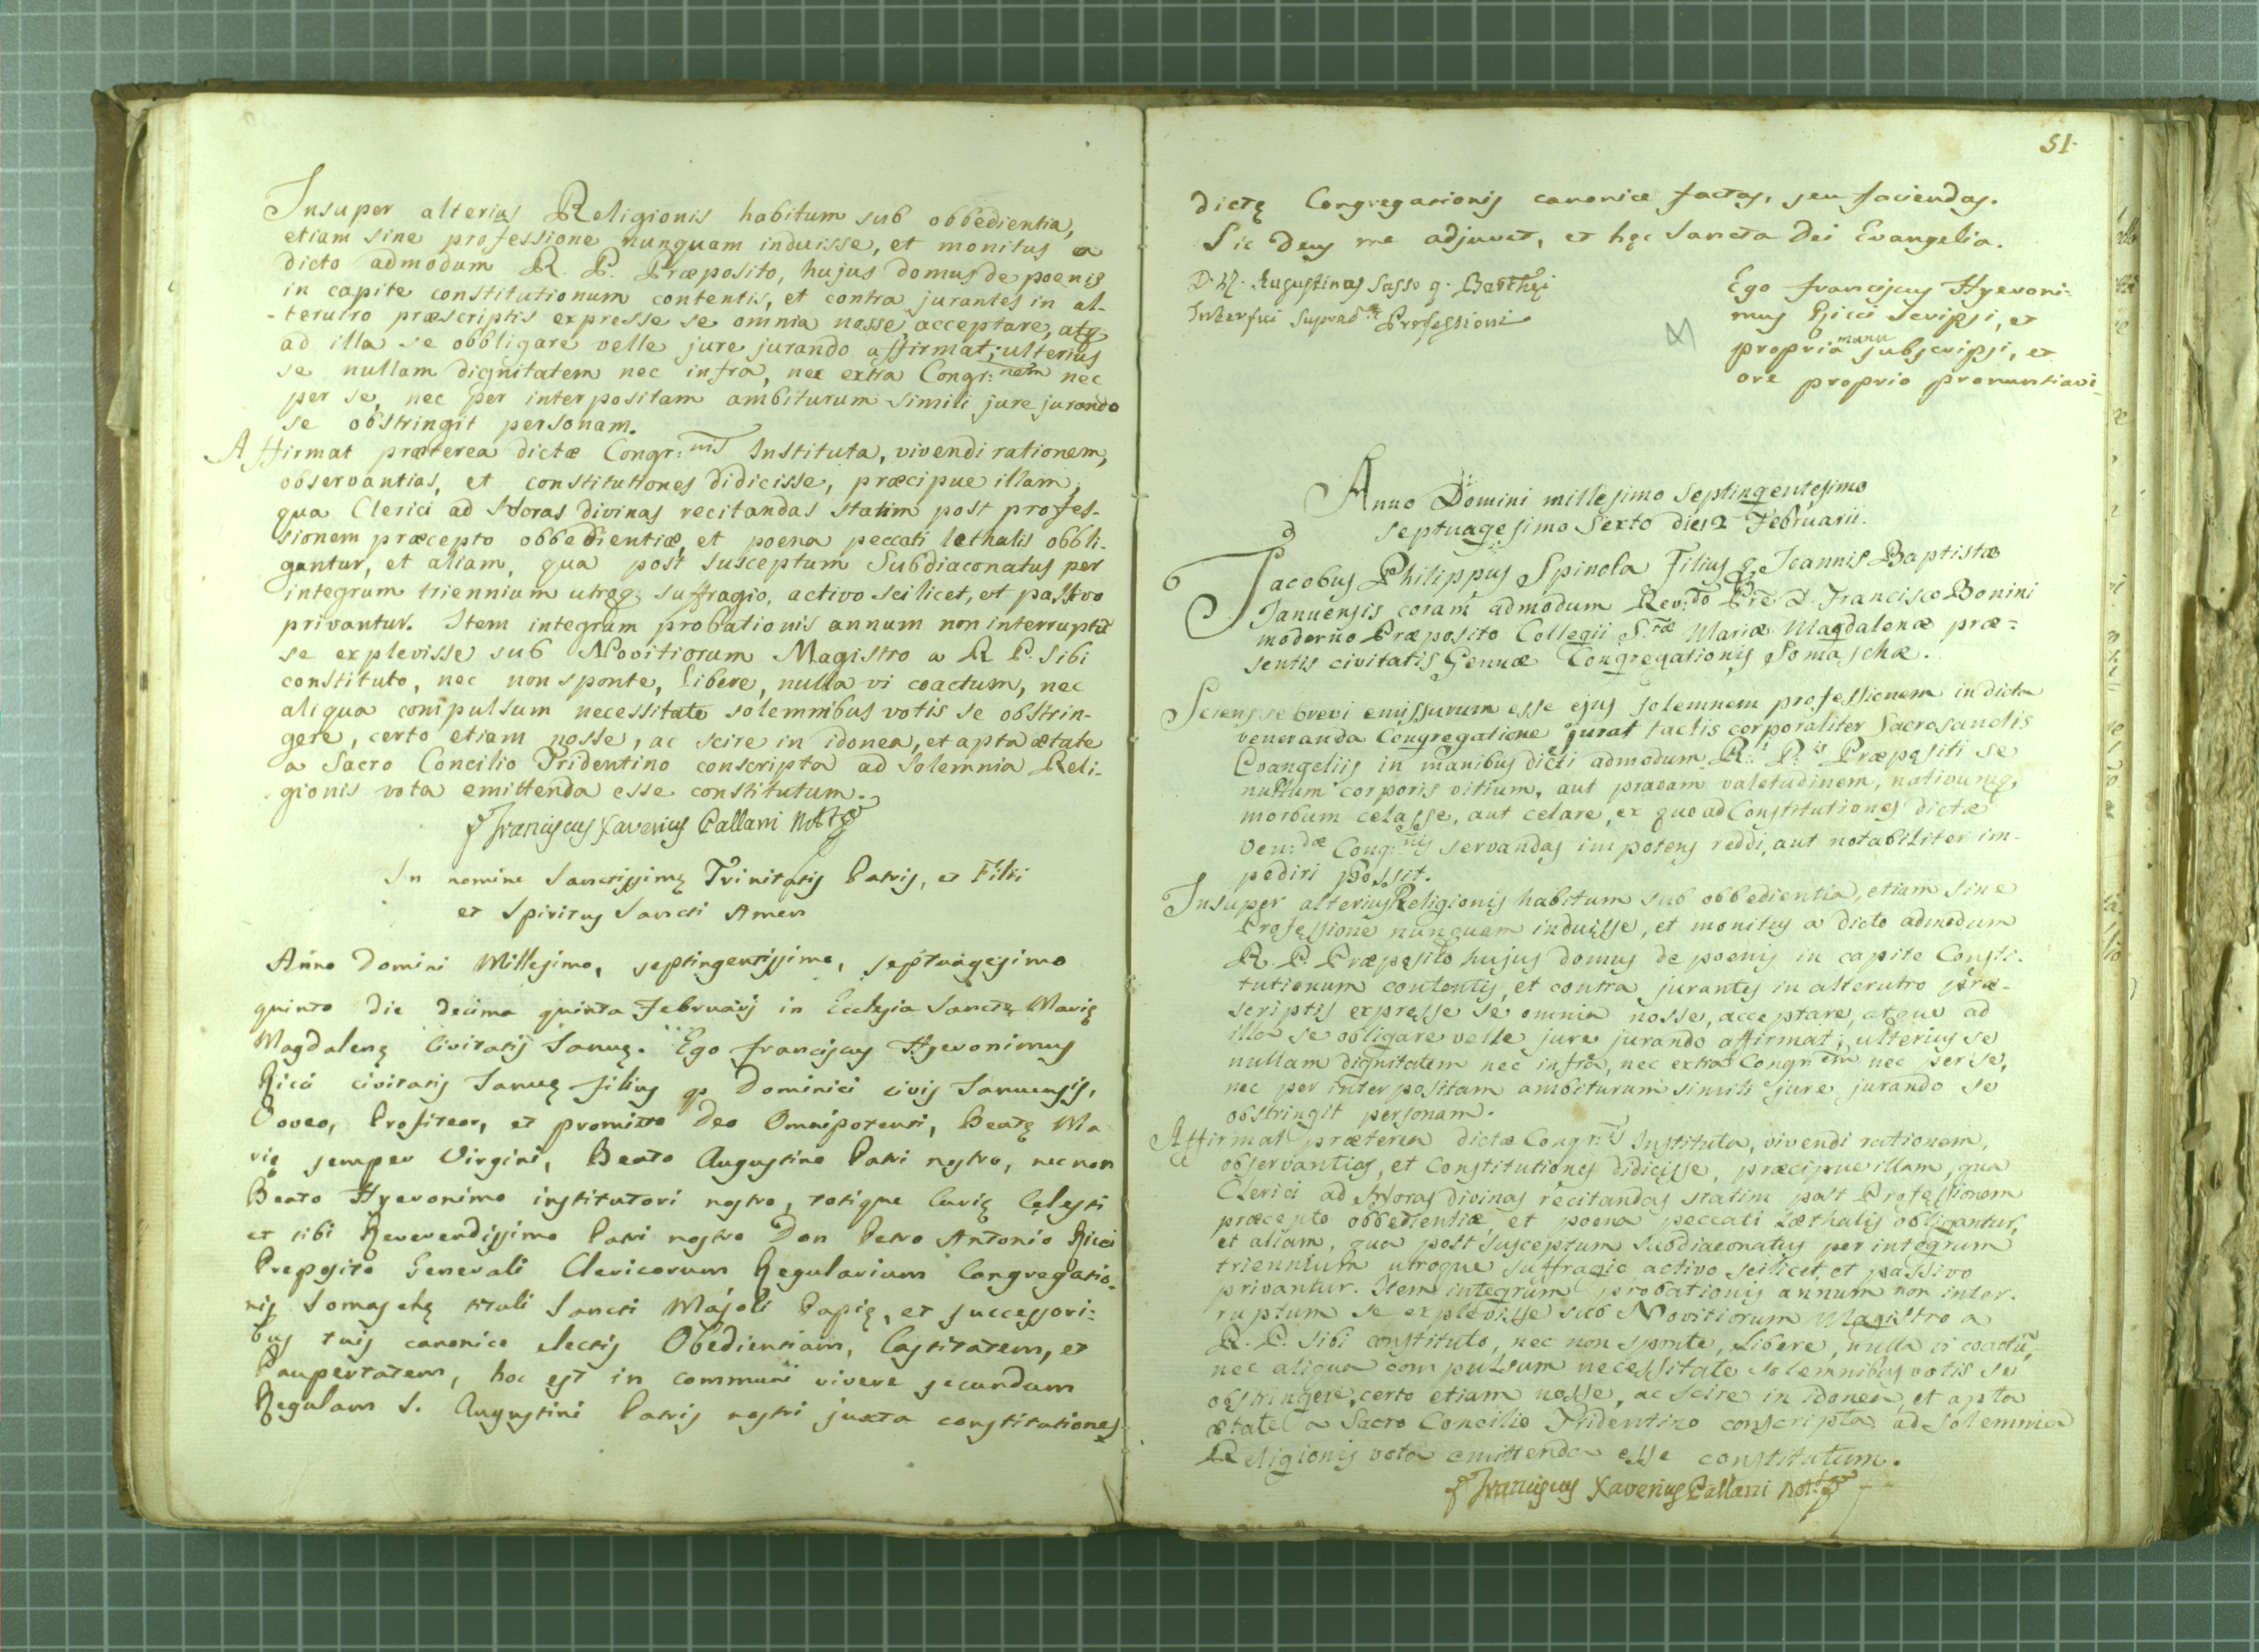 Insuper alterius Religionis habitum sub obbedientia,
etiam sine professione nunquam induisse, et monitus a
dicto admodum R. P. Præposito, hujus domus de poenis
in capite constitutionum contentis, et contra jurantes in al-
-terutro præscriptis expresse se omnia nosse, acceptare, atq
ad illa se obbligare velle jure jurando affirmat; ulterius
se nullam dignitatem nec infra, nec extra Congr:nem nec
per se, nec per interpositam ambiturum simili jure jurando
se obstringit personam.
Affirmat præterea dictæ Congr:nis Instituta, vivendi rationem,
observantias, et constitutiones didicisse, præcipue illam,
qua Clerici ad Horas divinas recitandas statim post profes-
sionem præcepto obbedientiæ, et poena peccati lethalis obbli-
gantur, et aliam, qua post susceptum Subdiaconatus per
integrum triennium utroq; suffragio, activo scilicet, et passivo
privantur. Item integrum probationis annum non interruptũ
se explevisse sub Novitiorum Magistro a R P. sibi
constituto, nec non sponte, libere, nulla vi coactum, nec
aliqua compulsum necessitate solemnibus votis se obstrin-
gere, certo etiam nosse, ac scire in idonea, et apta ætate
a Sacro Concilio Tridentino conscripta ad solemnia Reli-
gionis vota emittenda esse constitutum.
Franciscus Xaverius Pallani Not
In nomine Sanctissimę Trinitatis Patris, et Filii
et Spiritus Sancti Amen
Anno Domini Millesimo, septingentissimo, septuagesimo
quinto die decima quinta Februarij in Ecclesia Sanctę Marię
Magdalenę Civitatis Januę. Ego Franciscus Hyeronimus
Ricci civitatis Januę filius q. Dominici civis Januensis,
Voveo, Profiteor, et promitto Deo Omnipotenti, Beatę Ma-
rię semper Virgini, Beato Augustino Patri nostro, nec non
Beato Hyeronimo institutori nostro, totique Curię Cęlesti
et tibi Reverendissimo Patri nostro Don Petro Antonio Ricci
Preposito Generali Clericorum Regularium Congregatio-
nis Somaschę tituli Sancti Majoli Papię, et successori-
bus tuis canonice electis Obedientiam, Castitatem, et
Paupertatem, hoc est in communi vivere secundum
Regulam S. Augustini Patris nostri juxta constitutiones
51.
dictę Congregationis canonice factas, seu faciendas.
Sic Deus me adjuvet, et hęc Sancta Dei Evangelia.
D. Augustinus Sasso q. Barthęi
Interfui Suprad. Professioni
Ego Franciscus Hyeroni-
mus Ricci scripsi, et
propria manu subscripsi, et
ore proprio pronuntiavi
Anno Domini millesimo septingentesimo
septuagesimo sexto die 12 Februarii.
Jacobus Philippus Spinola Filius q. Joannis Baptistæ
Januensis coram admodum Rev:do Pre D. Francisco Bonini
moderno Præposito Collegii S.tæ Mariæ Magdalenæ præ-
sentis civitatis Genuæ Congregationis Somaschæ.
Sciens se brevi emissurum esse ejus solemnem professionem in dicta
veneranda Congregatione jurat tactis corporaliter Sacrosanctis
Evangeliis in manibus dicti admodum R. P.is Præpositi se
nullum corporis vitium, aut pravam valetudinem, nativumq.
morbum celasse, aut celare, ex quo ad Constitutiones dictæ
Ven:dæ Cong:nis servandas impotens reddi, aut notabiliter im-
pediri possit.
Insuper alterius Religionis habitum sub obbedientia, etiam sine
Professione nunquam induisse, et monitus a dicto admodum
R. P. Præposito hujus domus de poenis in capite Consti-
tutionum contentis, et contra jurantes in alterutro præ-
scriptis expresse se omnia nosse, acceptare, atque ad
illa se obligare velle jure jurando affirmat; ulterius se
nullam dignitatem nec infra, nec extra Congr.em nec per se,
nec per interpositam ambiturum simili jure jurando se
obstringit personam.
Affirmat præterea dictæ Congr:is Instituta, vivendi rationem,
observantias, et Constitutiones didicisse, præcipue illam, qua
Clerici ad Horas divinas recitandas statim post Professionem
præcepto obbedientiæ, et poena peccati Læthalis obligantur,
et aliam, qua post susceptum subdiaconatus per integrum
triennium utroque suffragio activo scilicet, et passivo
privantur. Item integrum probationis annum non inter-
ruptum se explevisse sub Novitiorum Magistro a
R. P. sibi constituto, nec non sponte, Libere, nulla vi coactũ,
nec aliqua compulsum necessitate solemnibus votis se
obstringere, certo etiam nosse, ac scire in idonea, et apta
ætate a Sacro Concilio Tridentino conscripta ad solemnia
Religionis vota emittenda esse constitutum.
Franciscus Xaverius Pallani Not: